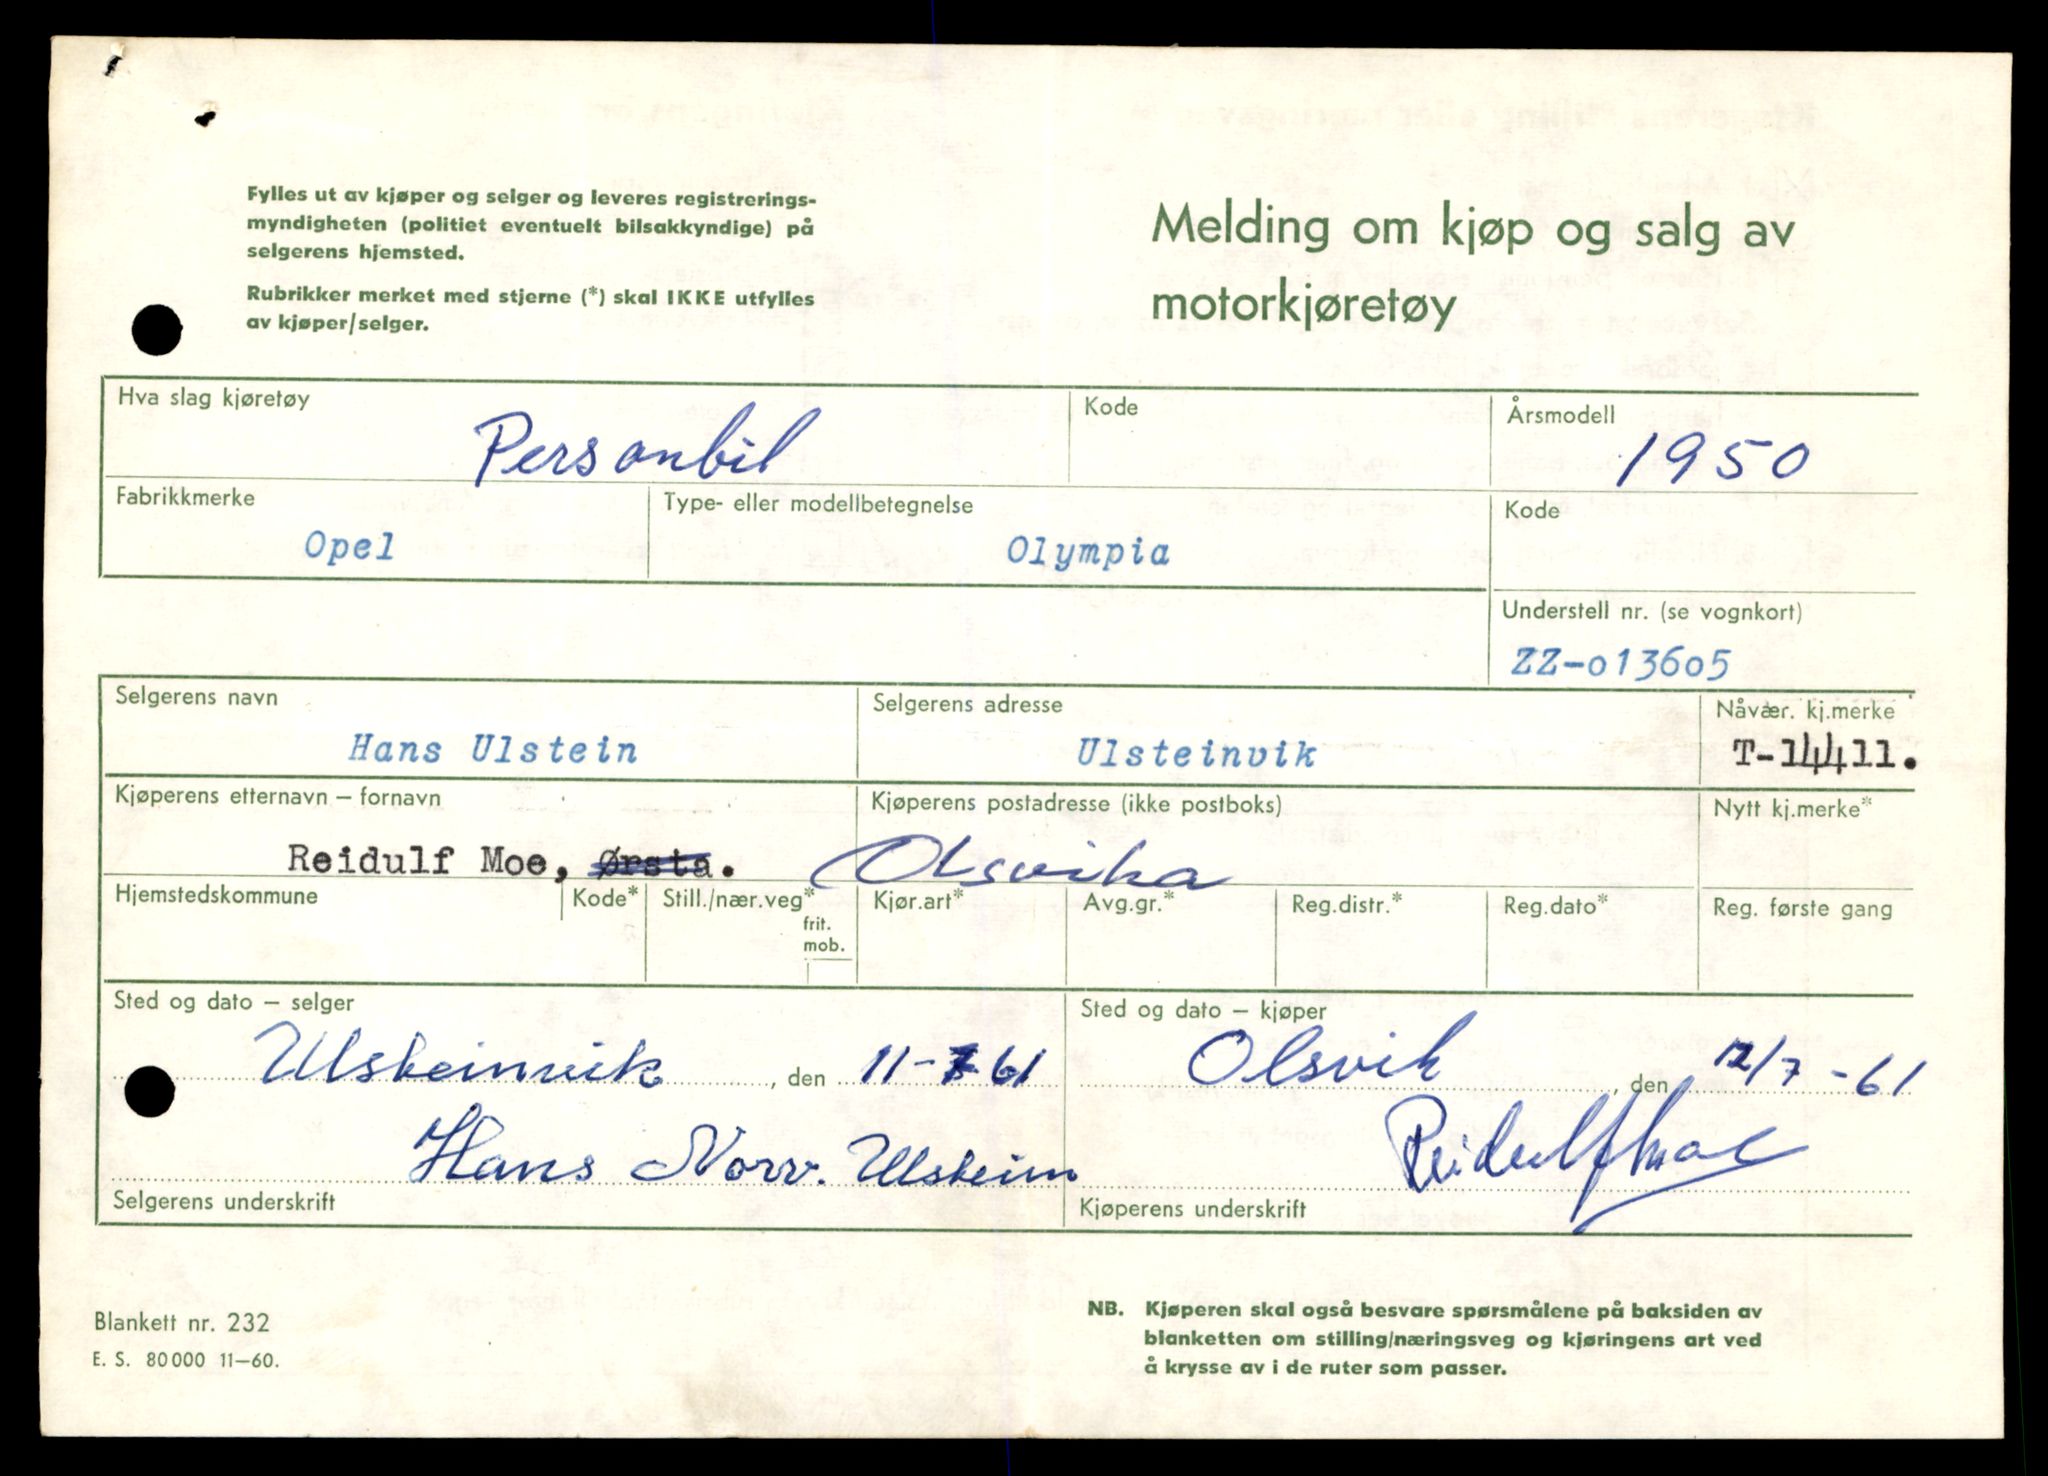 Fylles ut av kjøper og selger og leveres registrerings-
myndigheten (politiet eventuelt bilsakkyndige) på
selgerens hjemsted.
Rubrikker merket med stjerne (*) skal IKKE utfylles
av kjøper/selger.
Melding om kjøp og salg av
motorkjøretøy
Hva slag kjøretøy
Personbil
Kode
Årsmodell
1950
Fabrikkmerke
Opel
Type- eller modellbetegnelse
Olympia
Kode
Understell nr. (se vognkort)
ZZ-013605
Selgerens navn
Hans Ulstein
Selgerens adresse
Ulsteinvik
Nåvær. kj.merke
T-14411.
Kjøperens etternavn – fornavn
Reidulf Moe, Ørsta.
Kjøperens postadresse (ikke postboks)
Olsvika
Nytt kj.merke*
Hjemstedskommune
Kode*
Still./nær.veg*
frit.
mob.
Kjør.art*
Avg.gr.*
Reg.distr.*
Reg.dato*
Reg. første gang
Sted og dato – selger
Ulsteinvik, den 11-7-61
Hans Norv. Ulstein
Selgerens underskrift
Sted og dato – kjøper
Olsvik, den 12/7-61
Reidulf Moe
Kjøperens underskrift
Blankett nr. 232
E. S. 80000 11–60.
NB. Kjøperen skal også besvare spørsmålene på baksiden av
blanketten om stilling/næringsveg og kjøringens art ved
å krysse av i de ruter som passer.